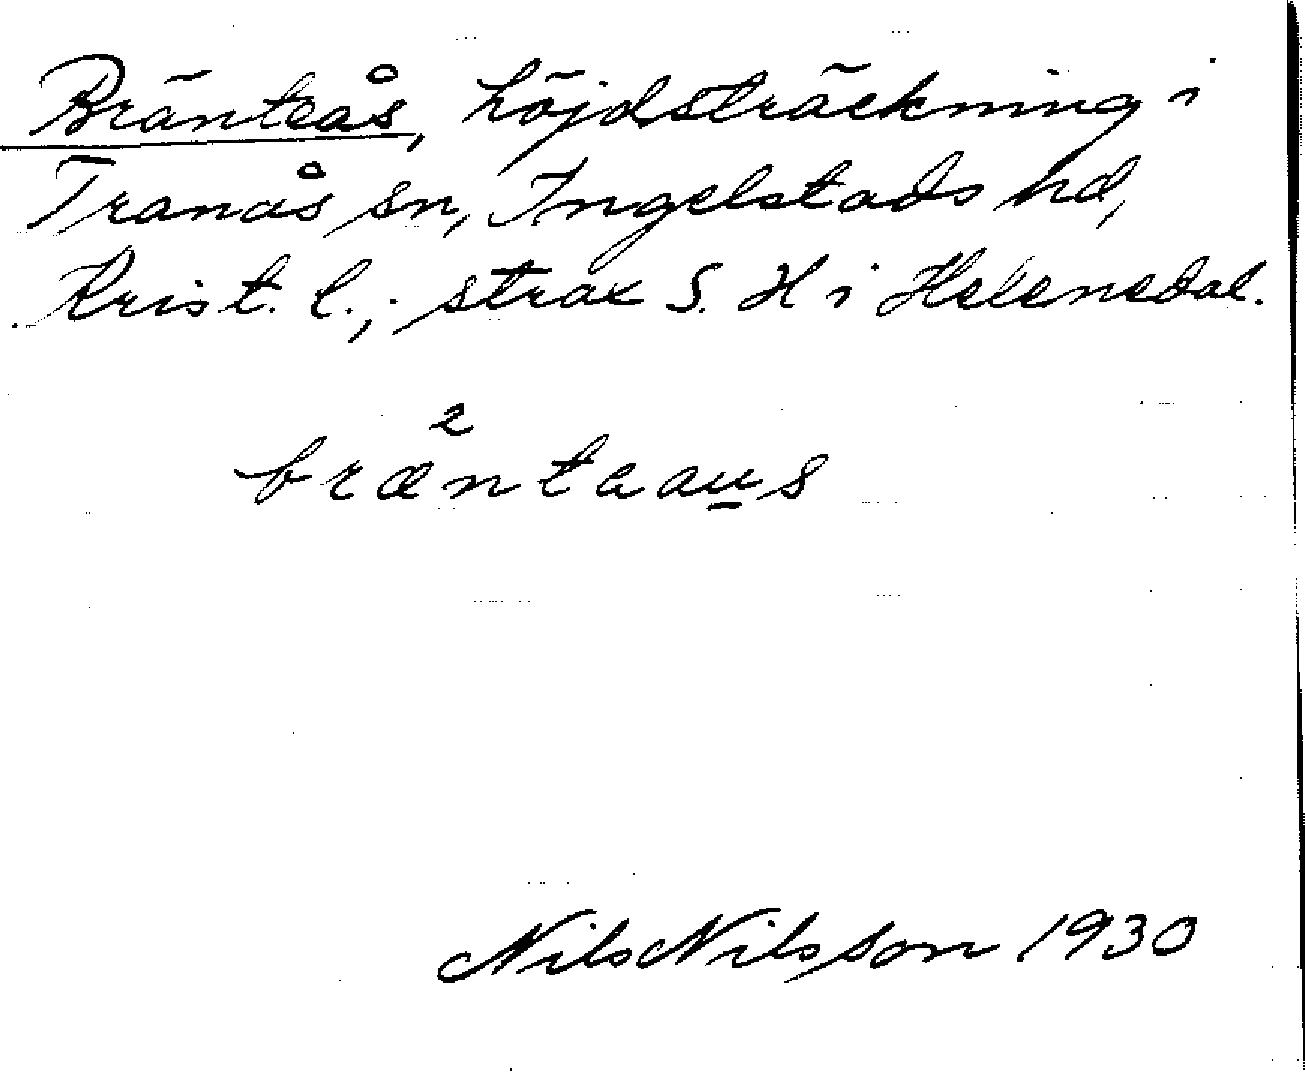 Bränteås, höjdsträckning i
Tranås sn, Ingelstads hd,
Krist. l., strax S. H i Helenedal.
2
bræntaaus
Nils Nilsson 1930